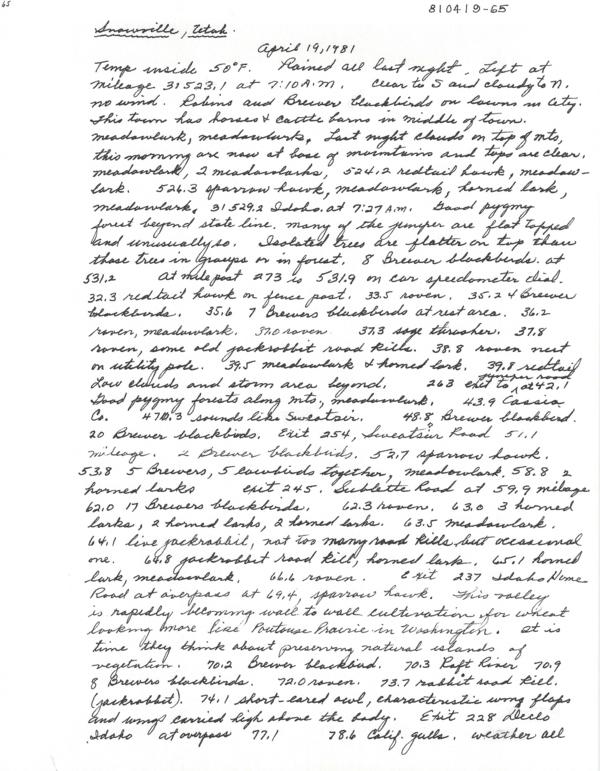 65
810419-65
Snowville, Utah.
April 19, 1981
Temp inside 50°F. Rained all last night. Left at
mileage 31523.1 at 7:10 A.M. Clear to S and cloudy to N.
no wind. Robins and Brewer blackbirds on lawns in city.
This town has horses & cattle barns in middle of town.
meadowlark, meadowlarks, Last night clouds on top of mts,
this morning are now at base of mountains and tops are clear.
meadowlark, 2 meadowlarks, 524.2 redtail hawk, meadow-
lark. 526.3 sparrow hawk, meadowlark, horned lark,
meadowlark, 31529.2 Idaho. at 7:27 A.m. Good pygmy
forest beyond state line. many of the juniper are flat topped
and unusually so. Isolated trees are flatter on top than
those trees in groups or in forest. 8 Brewer blackbirds. at
531.2 At mile post 273 is 531.9 on car speedometer dial.
32.3 redtail hawk on fence post. 33.5 raven. 35.2 4 Brewer
blackbirds. 35.6 7 Brewers blackbirds at rest area. 36.2
raven, meadowlark. 37.0 raven 37.3 sage thrasher. 37.8
raven, some old jackrabbit road kills. 38.8 raven nest
on utility pole. 39.5 meadowlark & horned lark. 39.8 redtail
Low clouds and storm area beyond. 263 exit to juniper road at 42.1
Good pygmy forests along mts., meadowlark. 43.9 Cassia
Co. 47.3 sounds like Sweatsir. 48.8 Brewer blackbird.
20 Brewer blackbirds. Exit 254, Sweatsir Road 51.1
mileage. 2 Brewer blackbirds. 52.7 sparrow hawk.
53.8 5 Brewers, 5 cowbirds together, meadowlark. 58.8 2
horned larks exit 245. Sublette Road at 59.9 mileage
62.0 17 Brewers blackbirds. 62.3 raven. 63.0 3 horned
larks, 2 horned larks, 2 horned larks. 63.5 meadowlark.
64.1 live jackrabbit, not too many road kills but occasional
one. 64.8 jackrabbit road kill, horned lark. 65.1 horned
lark, meadowlark. 66.6 raven. Exit 237 Idahome
Road at overpass at 69.4, sparrow hawk. This valley
is rapidly becoming wall to wall cultivation for wheat
looking more like Poulouse Prairie in Washington. It is
time they think about preserving natural islands of
vegetation. 70.2 Brewer blackbird. 70.3 Raft River 70.9
8 Brewers blackbirds. 72.0 raven. 73.7 rabbit road kill.
(jackrabbit). 74.1 short-eared owl, characteristic wing flaps
and wings carried high above the body. Exit 228 Declo
Idaho at overpass 77.1 78.6 Calif. gulls. weather all